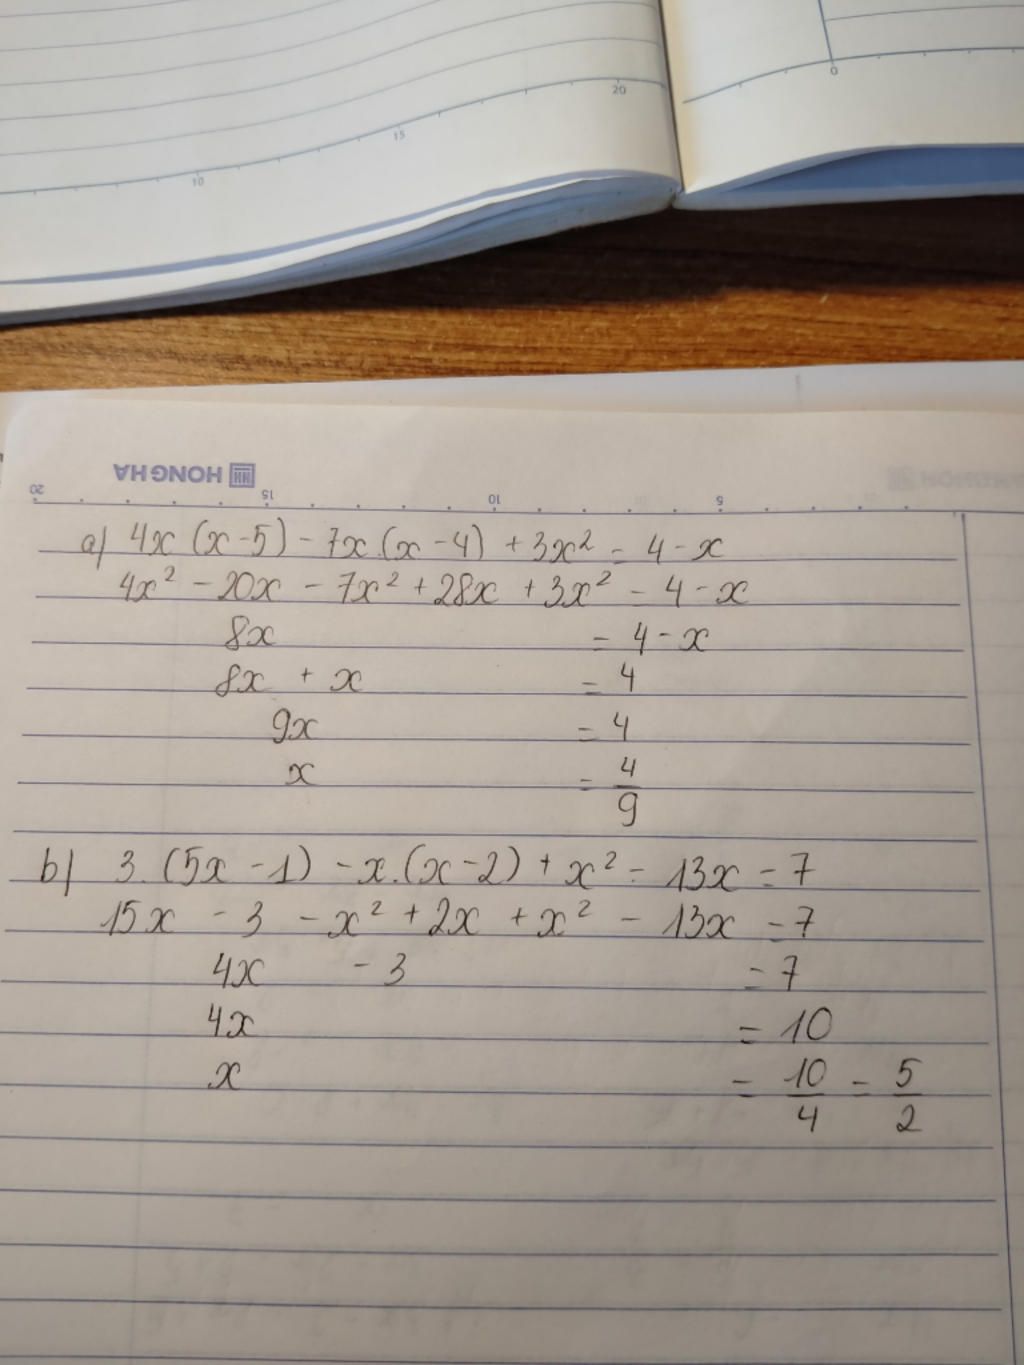 10 15 20
0
HONG HA
20 15 10 5
a) 4x (x-5) - 7x.(x-4) + 3x² = 4-x
4x² - 20x - 7x² + 28x + 3x² = 4-x
8x = 4-x
8x + x = 4
9x = 4
x = 4/9
b) 3.(5x-1) - x.(x-2) + x² - 13x = 7
15x - 3 - x² + 2x + x² - 13x = 7
4x - 3 = 7
4x = 10
x = 10/4 = 5/2